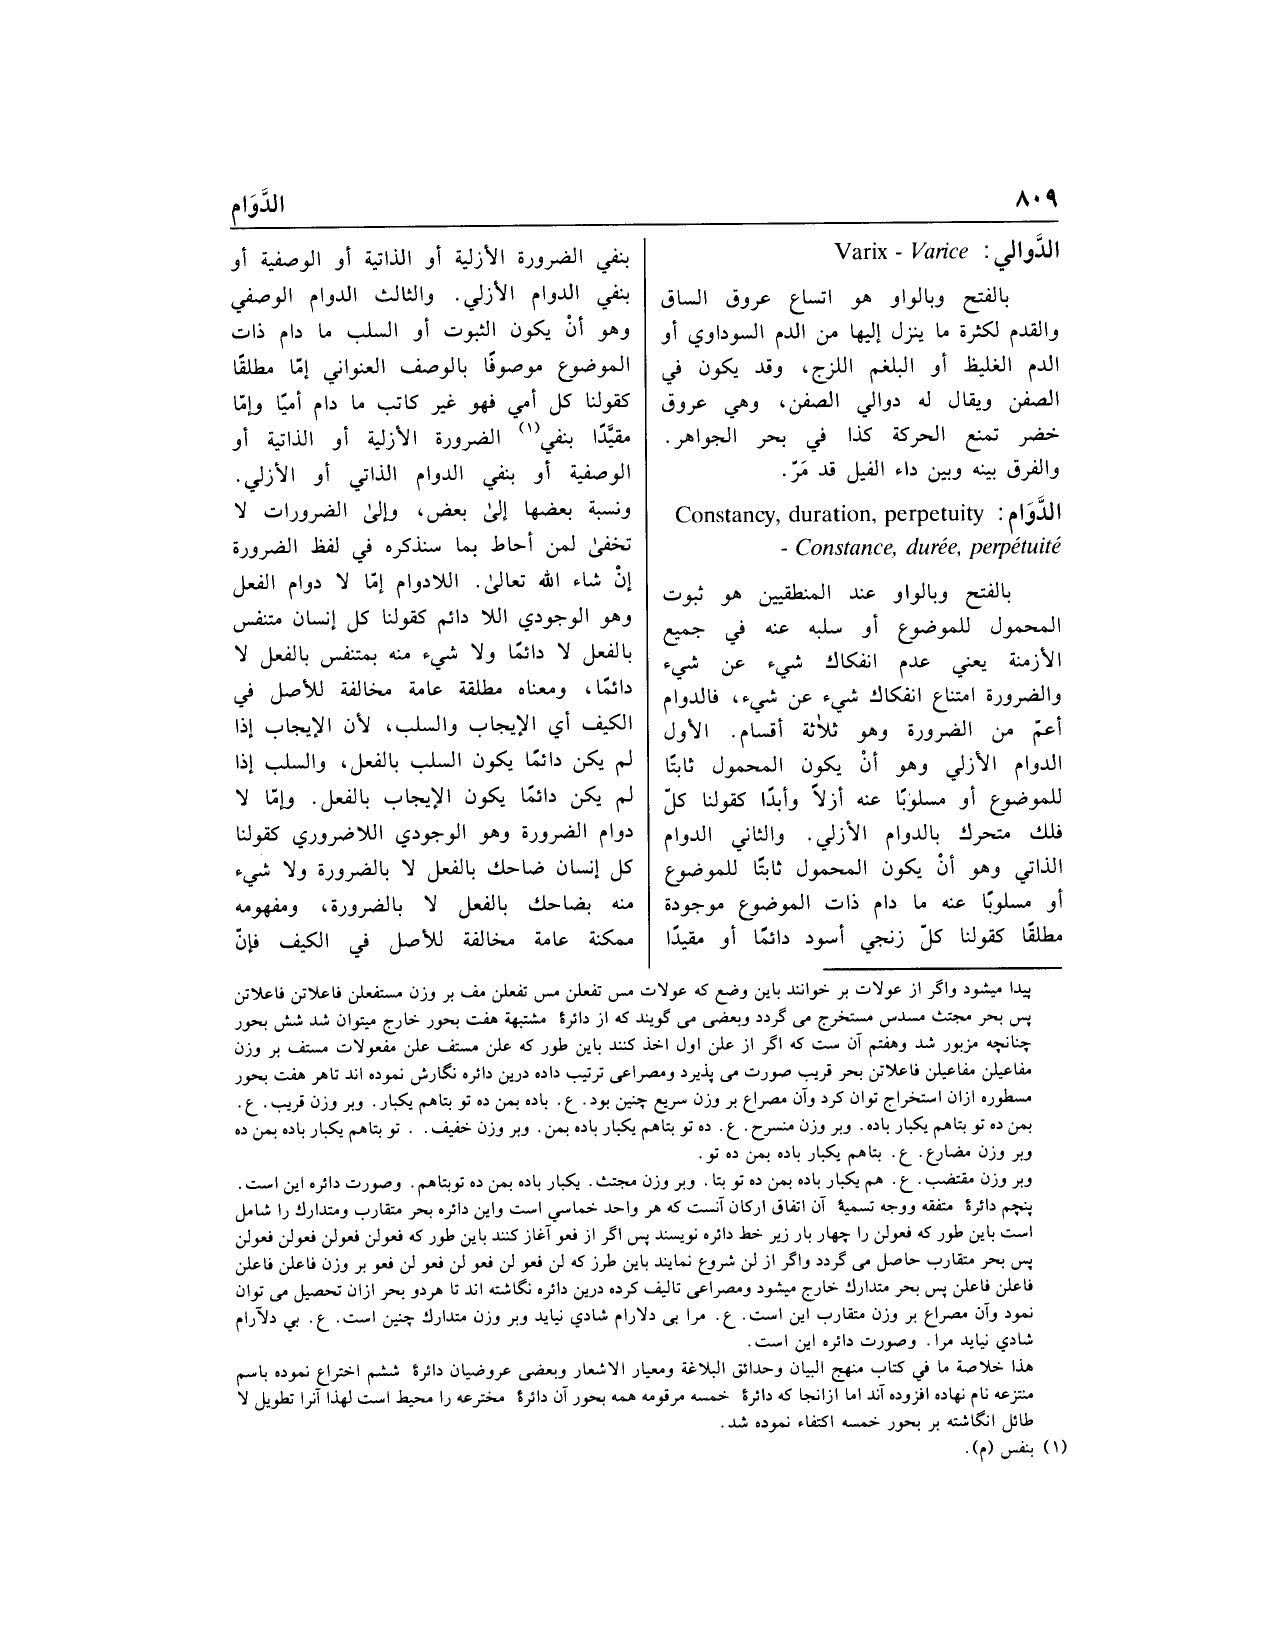 ٨٠٩
الدَّوَام
الدَّوالي: Varix - Varice
بالفتح وبالواو هو اتساع عروق الساق
والقدم لكثرة ما ينزل إليها من الدم السوداوي أو
الدم الغليظ أو البلغم اللزج، وقد يكون في
الصفن ويقال له دوالي الصفن، وهي عروق
خضر تمنع الحركة كذا في بحر الجواهر.
والفرق بينه وبين داء الفيل قد مَرّ.
الدَّوَام: Constancy, duration, perpetuity
- Constance, durée, perpétuité
بالفتح وبالواو عند المنطقيين هو ثبوت
المحمول للموضوع أو سلبه عنه في جميع
الأزمنة يعني عدم انفكاك شيء عن شيء
والضرورة امتناع انفكاك شيء عن شيء، فالدوام
أعمّ من الضرورة وهو ثلاثة أقسام. الأول
الدوام الأزلي وهو أنْ يكون المحمول ثابتًا
للموضوع أو مسلوبًا عنه أزلاً وأبدًا كقولنا كلّ
فلك متحرك بالدوام الأزلي. والثاني الدوام
الذاتي وهو أنْ يكون المحمول ثابتًا للموضوع
أو مسلوبًا عنه ما دام ذات الموضوع موجودة
مطلقًا كقولنا كلّ زنجي أسود دائمًا أو مقيدًا
بنفي الضرورة الأزلية أو الذاتية أو الوصفية أو
بنفي الدوام الأزلي. والثالث الدوام الوصفي
وهو أنْ يكون الثبوت أو السلب ما دام ذات
الموضوع موصوفًا بالوصف العنواني إمّا مطلقًا
كقولنا كل أمي فهو غير كاتب ما دام أميًا وإمّا
مقيَّدًا بنفي(١) الضرورة الأزلية أو الذاتية أو
الوصفية أو بنفي الدوام الذاتي أو الأزلي.
ونسبة بعضها إلىٰ بعض، وإلىٰ الضرورات لا
تخفىٰ لمن أحاط بما سنذكره في لفظ الضرورة
إنْ شاء الله تعالىٰ. اللادوام إمّا لا دوام الفعل
وهو الوجودي اللا دائم كقولنا كل إنسان متنفس
بالفعل لا دائمًا ولا شيء منه بمتنفس بالفعل لا
دائمًا، ومعناه مطلقة عامة مخالفة للأصل في
الكيف أي الإيجاب والسلب، لأن الإيجاب إذا
لم يكن دائمًا يكون السلب بالفعل، والسلب إذا
لم يكن دائمًا يكون الإيجاب بالفعل. وإمّا لا
دوام الضرورة وهو الوجودي اللاضروري كقولنا
كل إنسان ضاحك بالفعل لا بالضرورة ولا شيء
منه بضاحك بالفعل لا بالضرورة، ومفهومه
ممكنة عامة مخالفة للأصل في الكيف فإنّ
پيدا ميشود واگر از عولات بر خوانند باين وضع كه عولات مس تفعلن مس تفعلن مف بر وزن مستفعلن فاعلاتن فاعلاتن
پس بحر مجتث مسدس مستخرج مى گردد وبعضى مى گويند كه از دائرۀ مشتبهة هفت بحور خارج ميتوان شد شش بحور
چنانچه مزبور شد وهفتم آن ست كه اگر از علن اول اخذ كنند باين طور كه علن مستف علن مفعولات مستف بر وزن
مفاعيلن مفاعيلن فاعلاتن بحر قريب صورت مى پذيرد ومصراعى ترتيب داده درين دائره نگارش نموده اند تاهر هفت بحور
مسطوره ازان استخراج توان كرد وآن مصراع بر وزن سريع چنين بود. ع. باده بمن ده تو بتاهم يكبار. وبر وزن قريب. ع.
بمن ده تو بتاهم يكبار باده. وبر وزن منسرح. ع. ده تو بتاهم يكبار باده بمن. وبر وزن خفيف. . تو بتاهم يكبار باده بمن ده
وبر وزن مضارع. ع. بتاهم يكبار باده بمن ده تو.
وبر وزن مقتضب. ع. هم يكبار باده بمن ده تو بتا. وبر وزن مجتث. يكبار باده بمن ده توبتاهم. وصورت دائره اين است.
پنچم دائرۀ متفقه ووجه تسميۀ آن اتفاق اركان آنست كه هر واحد خماسي است واين دائره بحر متقارب ومتدارك را شامل
است باين طور كه فعولن را چهار بار زير خط دائره نويسند پس اگر از فعو آغاز كنند باين طور كه فعولن فعولن فعولن فعولن
پس بحر متقارب حاصل مى گردد واگر از لن شروع نمايند باين طرز كه لن فعو لن فعو لن فعو لن فعو بر وزن فاعلن فاعلن
فاعلن فاعلن پس بحر متدارك خارج ميشود ومصراعى تاليف كرده درين دائره نگاشته اند تا هردو بحر ازان تحصيل مى توان
نمود وآن مصراع بر وزن متقارب اين است. ع. مرا بى دلارام شادي نيايد وبر وزن متدارك چنين است. ع. بي دلآرام
شادي نيايد مرا. وصورت دائره اين است.
هذا خلاصة ما في كتاب منهج البيان وحدائق البلاغة ومعيار الاشعار وبعضى عروضيان دائرۀ ششم اختراع نموده باسم
منتزعه نام نهاده افزوده آند اما ازانجا كه دائرۀ خمسه مرقومه همه بحور آن دائرۀ مخترعه را محيط است لهذا آنرا تطويل لا
طائل انگاشته بر بحور خمسه اكتفاء نموده شد.
(١) بنفس (م).